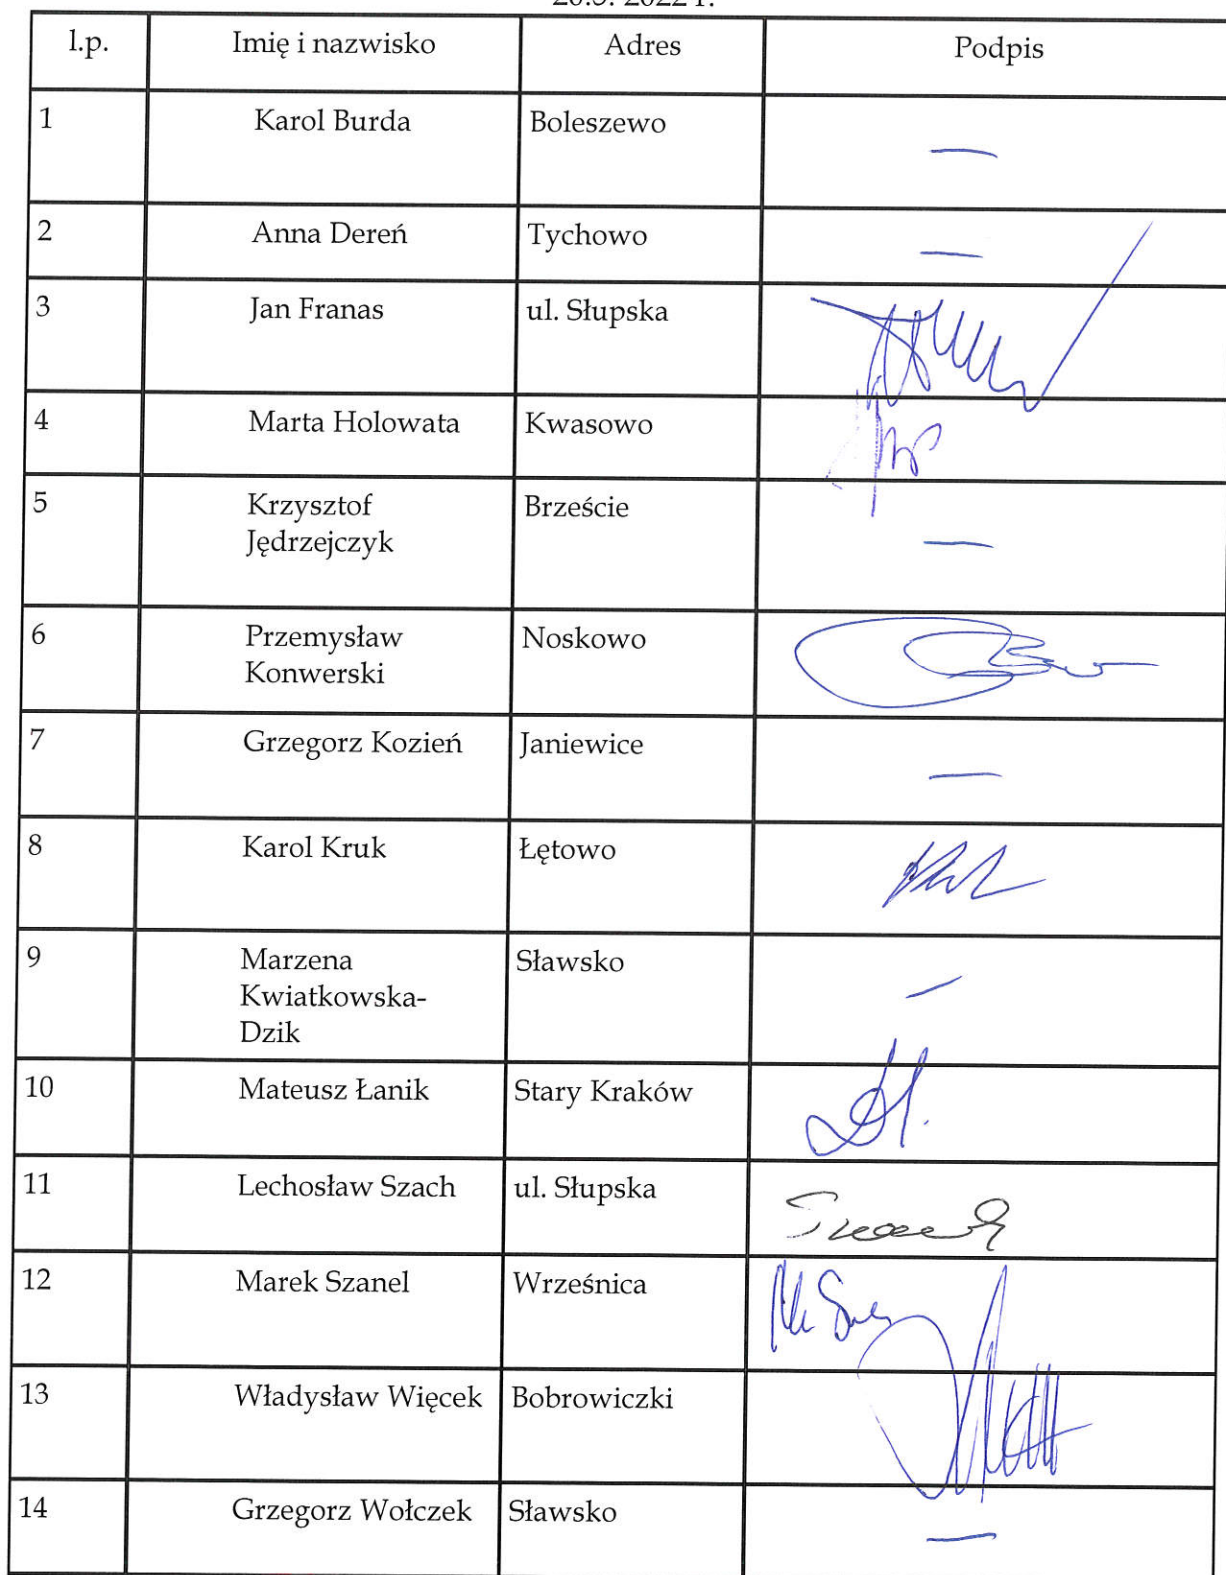 l.p. Imię i nazwisko Adres Podpis
1 Karol Burda Boleszewo —
2 Anna Dereń Tychowo —
3 Jan Franas ul. Słupska
4 Marta Holowata Kwasowo
5 Krzysztof Brzeście —
Jędrzejczyk
6 Przemysław Noskowo
Konwerski
7 Grzegorz Kozień Janiewice —
8 Karol Kruk Łętowo
9 Marzena Sławsko —
Kwiatkowska-
Dzik
10 Mateusz Łanik Stary Kraków
11 Lechosław Szach ul. Słupska
12 Marek Szanel Wrześnica
13 Władysław Więcek Bobrowiczki
14 Grzegorz Wołczek Sławsko —